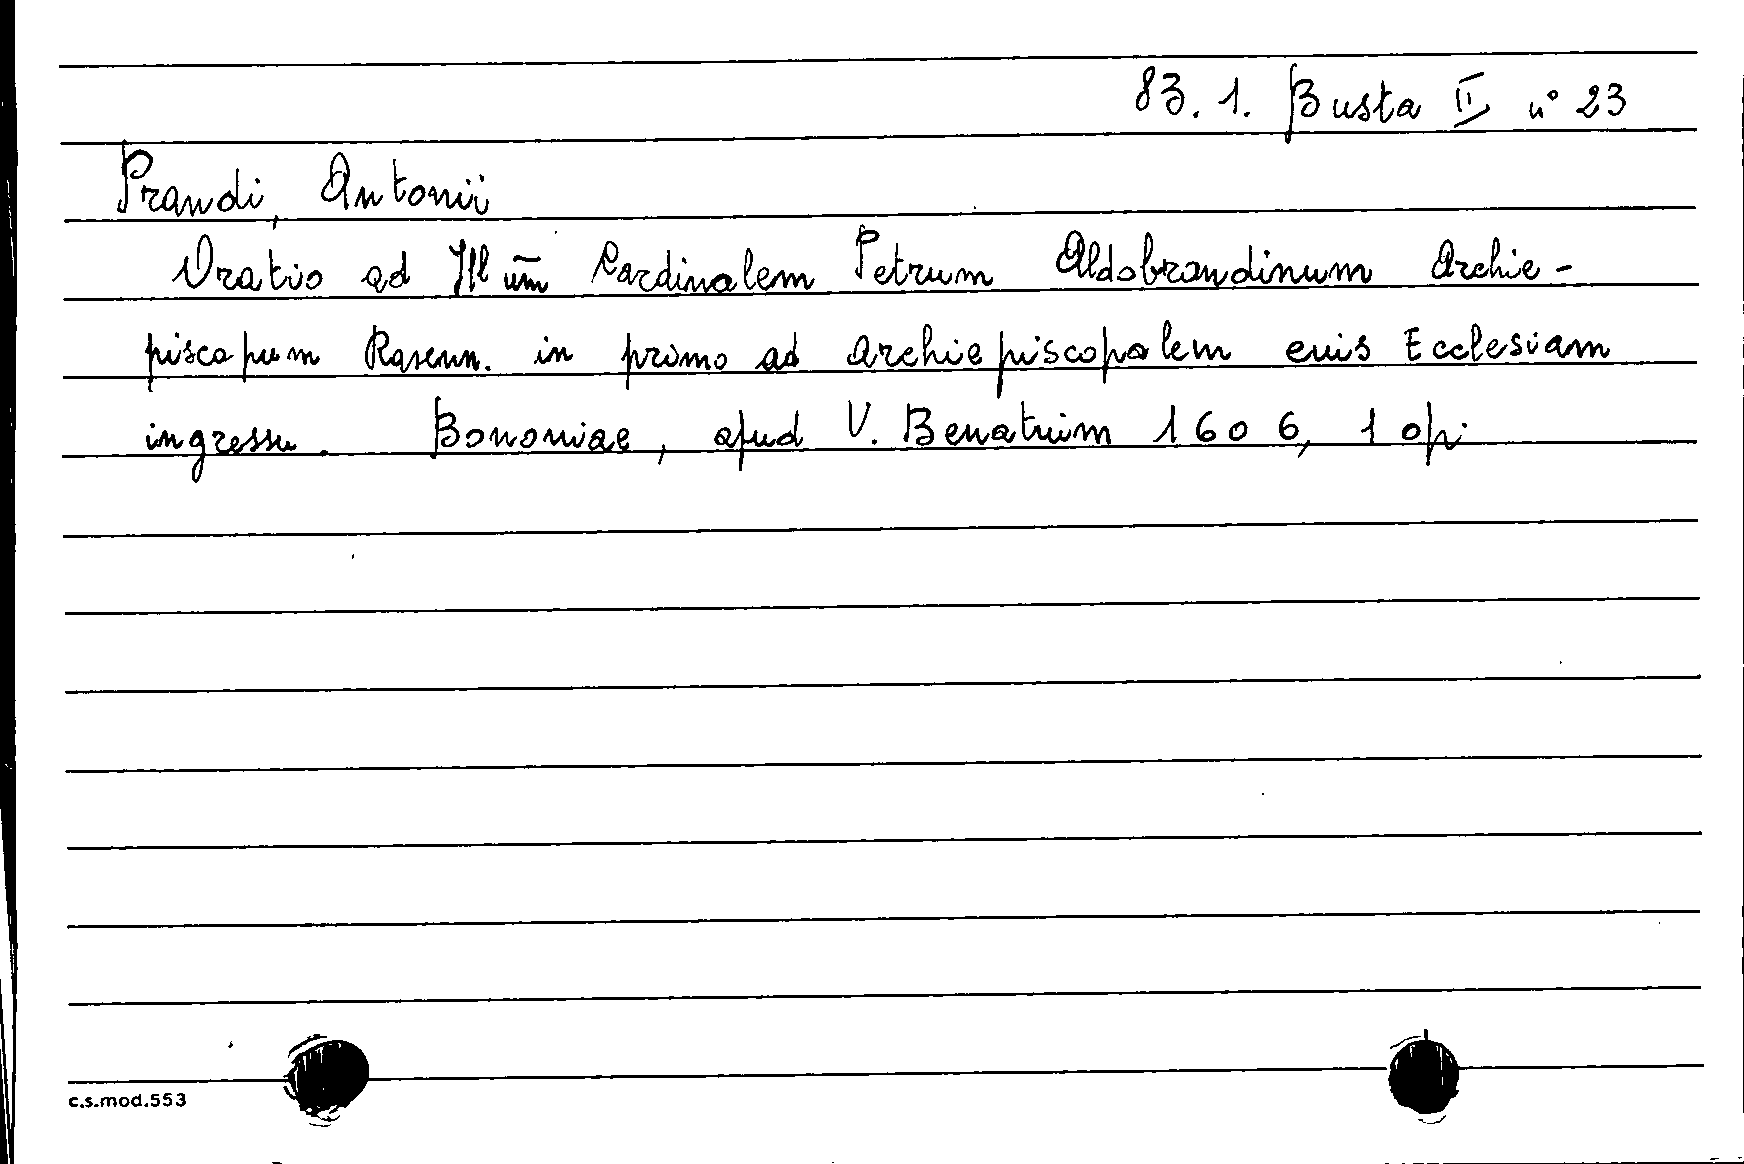 83. 1. Busta II n° 23
Prandi, Antonii
Oratio ad Ill um̄ Cardinalem Petrum Aldobrandinum Archie-
piscopum Ravenn. in primo ad Archiepiscopalem euis Ecclesiam
ingressu. Bononiae, apud V. Benatium 1606, 1 op.
c.s.mod.553